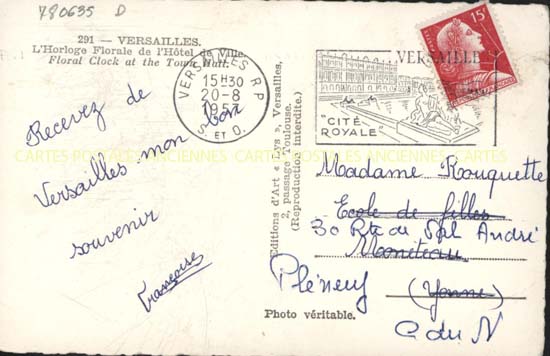 780635 D
291 — VERSAILLES.
L'Horloge Florale de l'Hôtel de Ville.
Floral Clock at the Town Hall.
VERSAILLES R P
15H30
20-8
1957
S. ET O.
VERSAILLES
"CITÉ
ROYALE"
15F
CARTES POSTALES ANCIENNES CARTES POSTALES ANCIENNES CARTES POSTALES ANCIENNES
Recevez de
Versailles mon bon
souvenir
Françoise
Editions d'Art « Lys », Versailles,
2, passage Toulouse.
(Reproduction interdite.)
Madame Rouquette
Ecole de filles
30 Rte du Spl André
Monéteau
Pléneuf (Yonne)
C du N
Photo véritable.